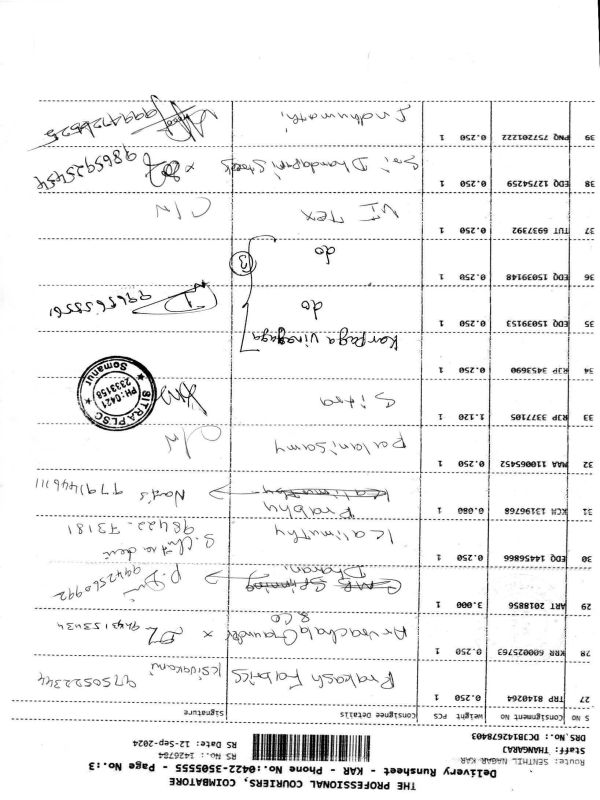 THE PROFESSIONAL COURIERS, COIMBATORE
Delivery Runsheet - KAR - Phone No.:0422-3505555 - Page No.:3
Route: SENTHIL NAGAR KAR
Staff: THANGARAJ RS No.: 1426784
DRS.No.: DCJB142678403 RS Date: 12-Sep-2024
S NO Consignment No Weight PCS Consignee Details Signature
27 TRP 8140264 0.250 1 Prakash Fabrics K Sivakami 9750522344
28 KRR 600025763 0.250 1 Arunachala Gounder & CO
29 ART 2018856 3.000 1 Dharani 9442560992
30 EDQ 14456866 0.250 1 Kalimuthy S. Chitra devi 98422-73181
31 KCH 13196768 0.080 1 Prabhu 9791446111
32 MAA 110065452 0.250 1 Palanisamy C/N
33 RJP 3377105 1.120 1 Sitra
SITRA PLSC
PH:0421
2333158
Somanur
34 RJP 3453690 0.250 1 Karpaga vinayaga
35 EDQ 15039153 0.250 1 do
36 EDQ 15039148 0.250 1 do 3
37 TUT 6937392 0.250 1 VI TEX C/N
38 EDQ 12754259 0.250 1 Sri Dhandapani Stores 9865925454
39 PNQ 257201222 0.250 1 Indhumathi